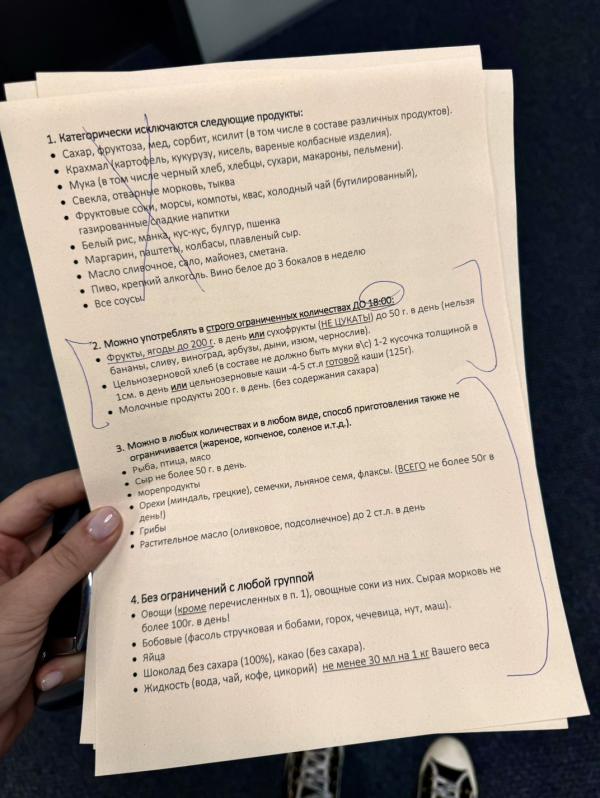 1. Категорически исключаются следующие продукты:
• Сахар, фруктоза, мед, сорбит, ксилит (в том числе в составе различных продуктов).
• Крахмал (картофель, кукурузу, кисель, вареные колбасные изделия).
• Мука (в том числе черный хлеб, хлебцы, сухари, макароны, пельмени).
• Свекла, отварные морковь, тыква
• Фруктовые соки, морсы, компоты, квас, холодный чай (бутилированный),
газированные сладкие напитки
• Белый рис, манка, кус-кус, булгур, пшенка
• Маргарин, паштеты, колбасы, плавленый сыр.
• Масло сливочное, сало, майонез, сметана.
• Пиво, крепкий алкоголь. Вино белое до 3 бокалов в неделю
• Все соусы
2. Можно употреблять в строго ограниченных количествах ДО 18:00:
• Фрукты, ягоды до 200 г. в день или сухофрукты (НЕ ЦУКАТЫ) до 50 г. в день (нельзя
бананы, сливу, виноград, арбузы, дыни, изюм, чернослив).
• Цельнозерновой хлеб (в составе не должно быть муки в\с) 1-2 кусочка толщиной в
1см. в день или цельнозерновые каши -4-5 ст.л готовой каши (125г).
• Молочные продукты 200 г. в день. (без содержания сахара)
3. Можно в любых количествах и в любом виде, способ приготовления также не
ограничивается (жареное, копченое, соленое и.т.д.).
• Рыба, птица, мясо
• Сыр не более 50 г. в день.
• морепродукты
• Орехи (миндаль, грецкие), семечки, льняное семя, флаксы. (ВСЕГО не более 50г в
день!)
• Грибы
• Растительное масло (оливковое, подсолнечное) до 2 ст.л. в день
4. Без ограничений с любой группой
• Овощи (кроме перечисленных в п. 1), овощные соки из них. Сырая морковь не
более 100г. в день!
• Бобовые (фасоль стручковая и бобами, горох, чечевица, нут, маш).
• Яйца
• Шоколад без сахара (100%), какао (без сахара).
• Жидкость (вода, чай, кофе, цикорий) не менее 30 мл на 1 кг Вашего веса